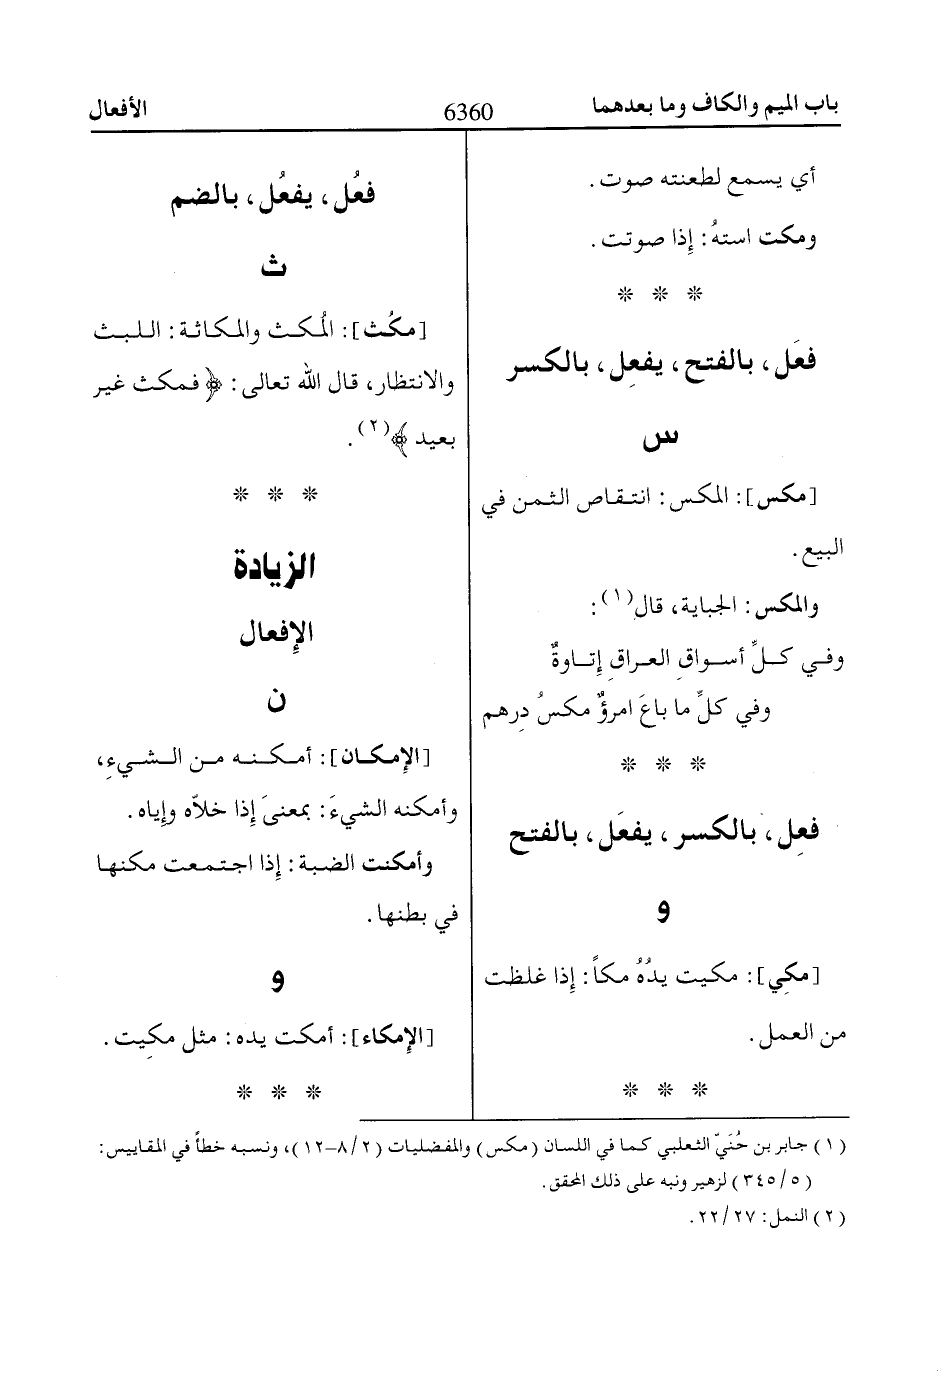 باب الميم والكاف وما بعدهما
6360
الأفعال
أي يسمع لطعنته صوت.
ومكت استهُ: إذا صوتت.
* * *
فعَل، بالفتح، يفعِل، بالكسر
س
[مكس]: المكس: انتقاص الثمن في
البيع.
والمكس: الجباية، قال(١):
وفي كلِّ أسواقِ العراقِ إتاوةٌ
وفي كلِّ ما باعَ امرؤٌ مكسُ درهم
* * *
فعِل، بالكسر، يفعَل، بالفتح
و
[مكي]: مكيت يدُهُ مكاً: إذا غلظت
من العمل.
* * *
فعُل، يفعُل، بالضم
ث
[مكُث]: المُكث والمكاثة: اللبث
والانتظار، قال الله تعالى: ﴿فمكث غير
بعيد﴾(٢).
* * *
الزيادة
الإفعال
ن
[الإمكان]: أمكنه من الشيءِ،
وأمكنه الشيءَ: بمعنىً إذا خلاّه وإياه.
وأمكنت الضبة: إذا اجتمعت مكنها
في بطنها.
و
[الإمكاء]: أمكت يده: مثل مكِيت.
* * *
(١) جابر بن حُنَيّ الثعلبي كما في اللسان (مكس) والمفضليات (٢/٨–١٢)، ونسبه خطأً في المقاييس:
(٥/٣٤٥) لزهير ونبه على ذلك المحقق.
(٢) النمل: ٢٢/٢٧.